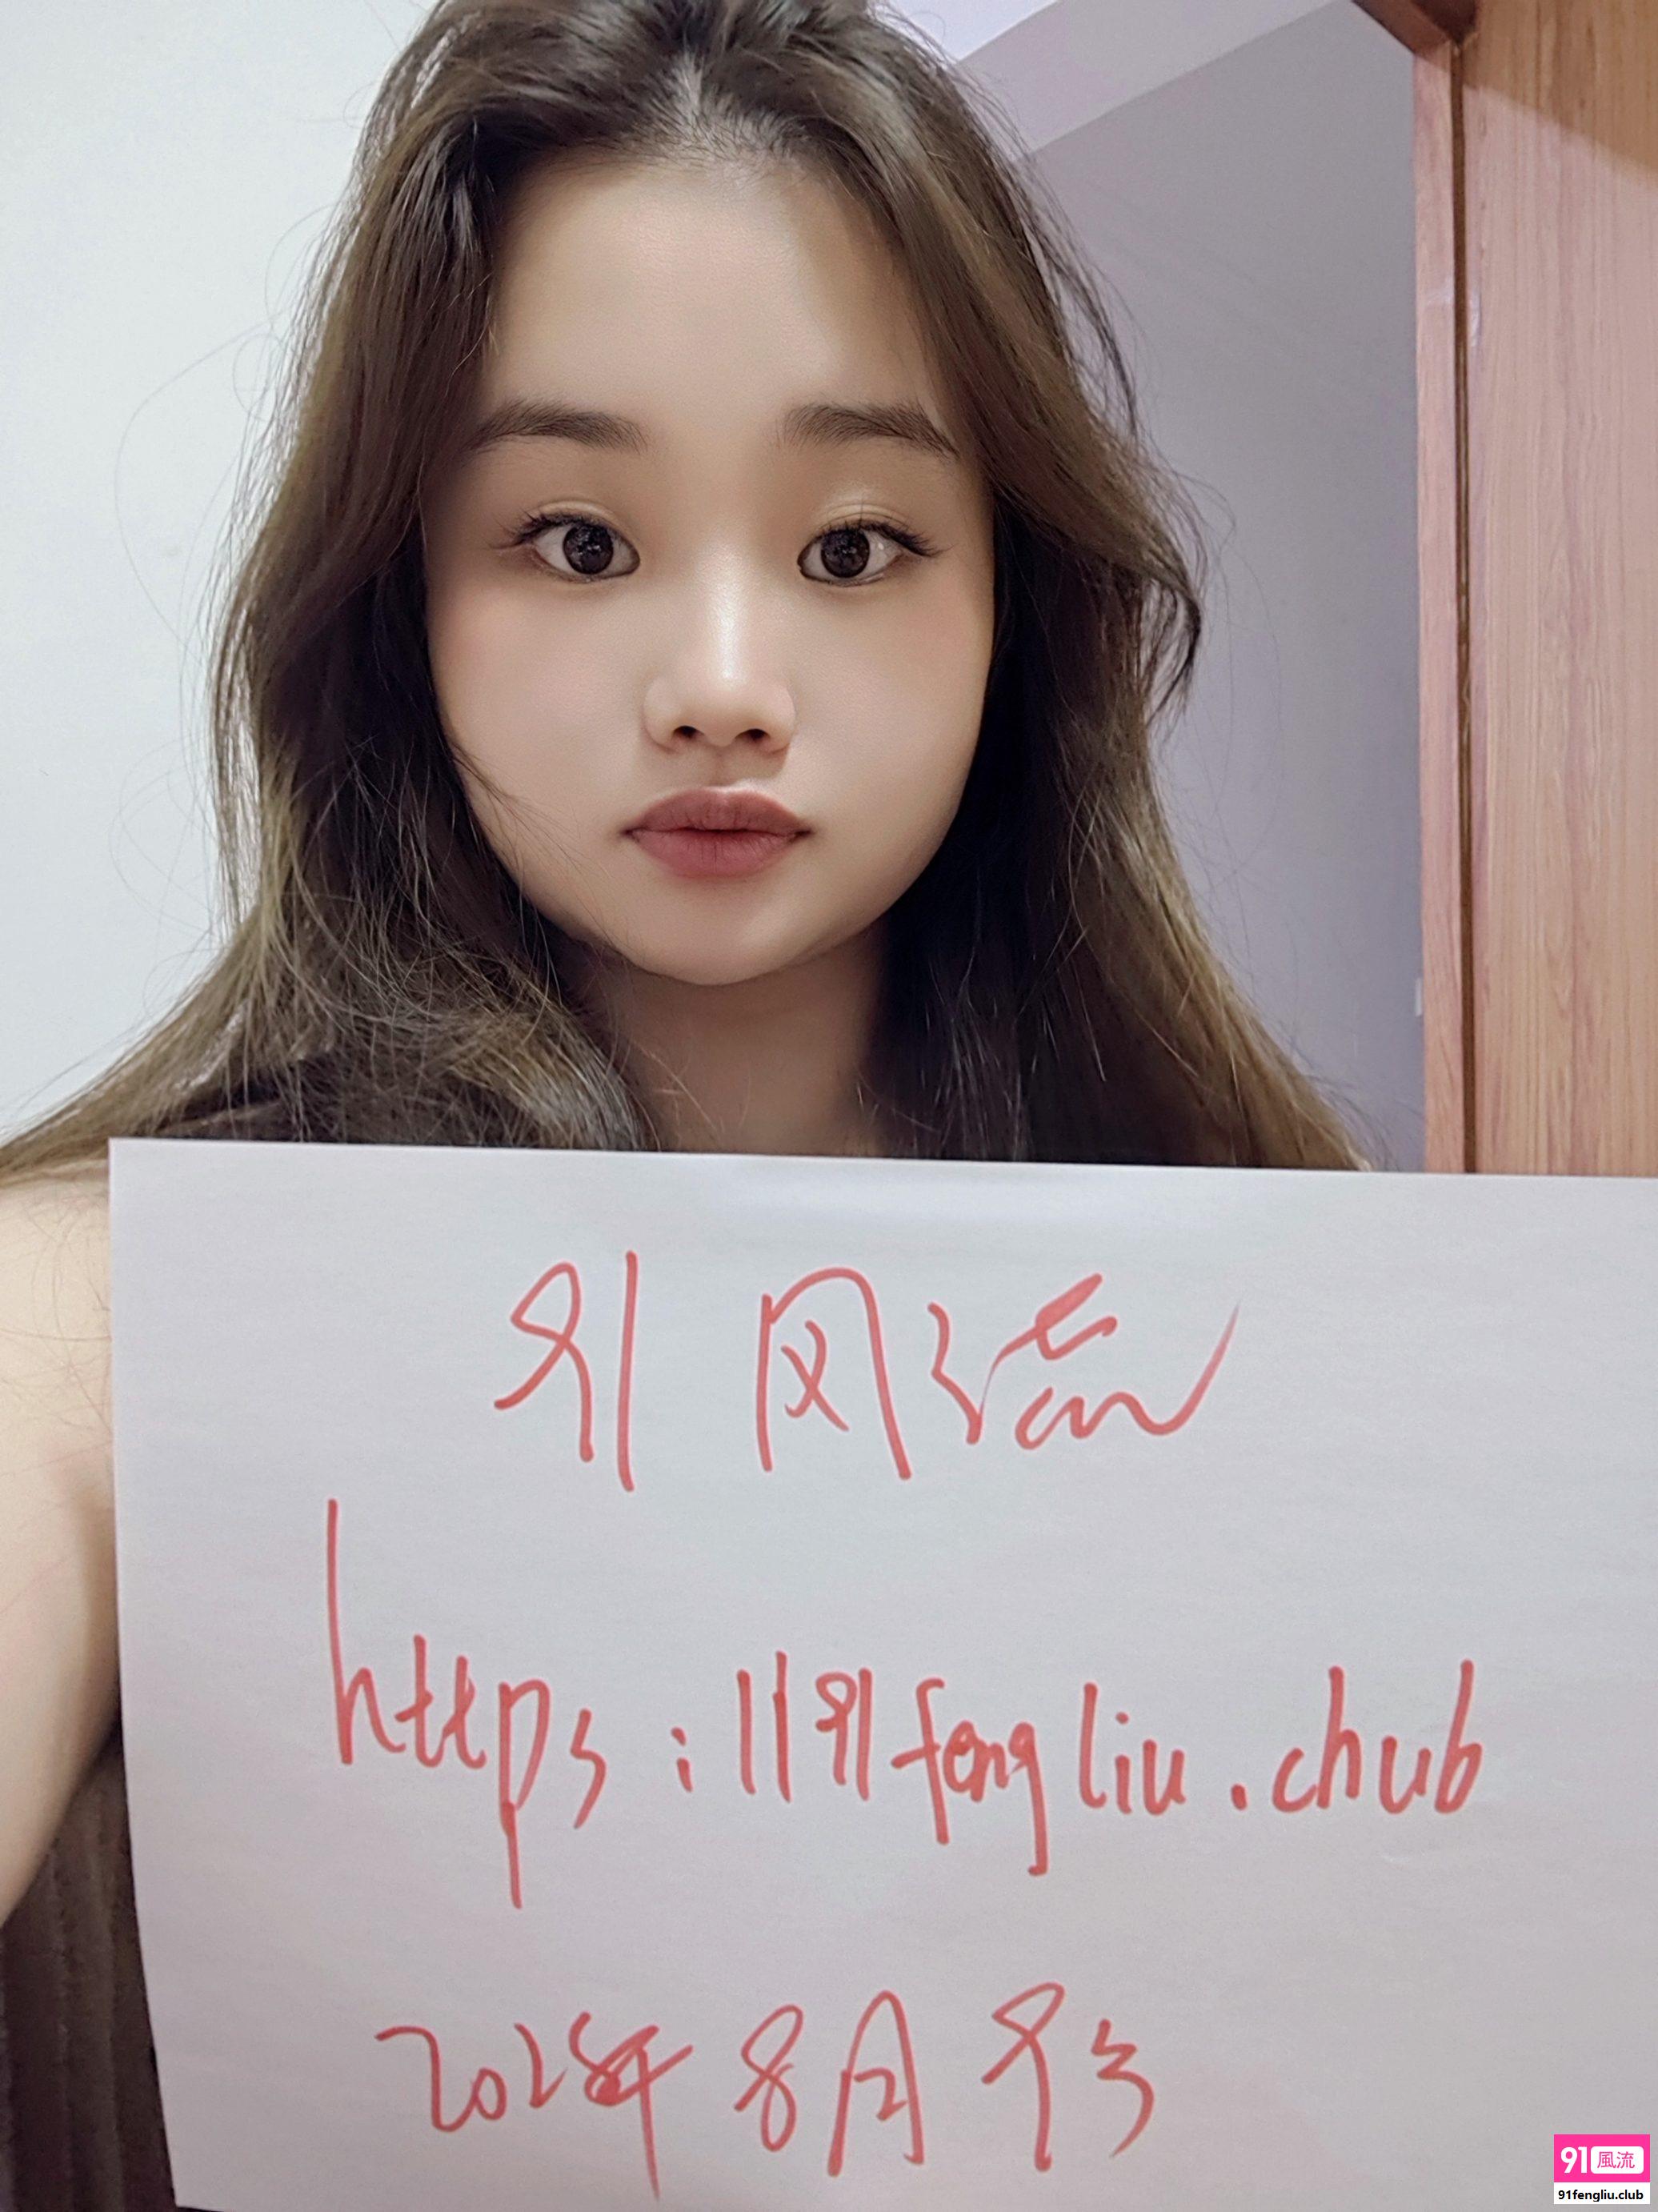 91 风流
https://91fengliu.chub
8月
91風流
91fengliu.club